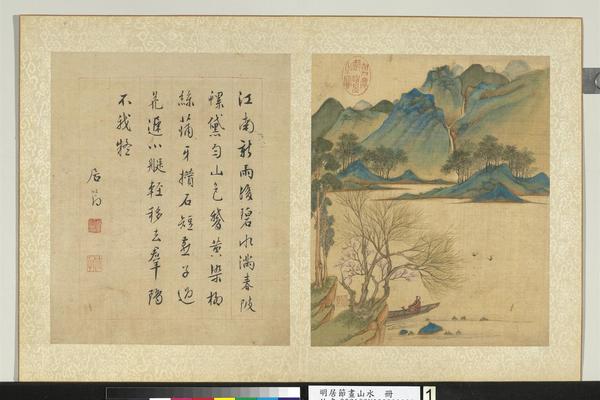 江南新雨後碧水滿春陂
螺黛勻山色鵞黃染柳
絲蒲牙攢石短燕子迎
花遲小艇輕移去羣鷗
不我疑
居節
明居節畫山水 冊
1